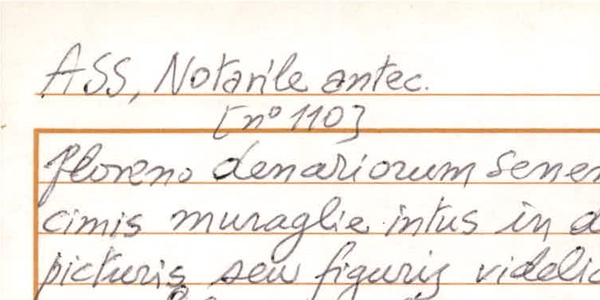 ASS, Notarile antec.
[n° 110]
floreno denariorum senen
cimis muraglie intus in d
picturis seu figuris videlic